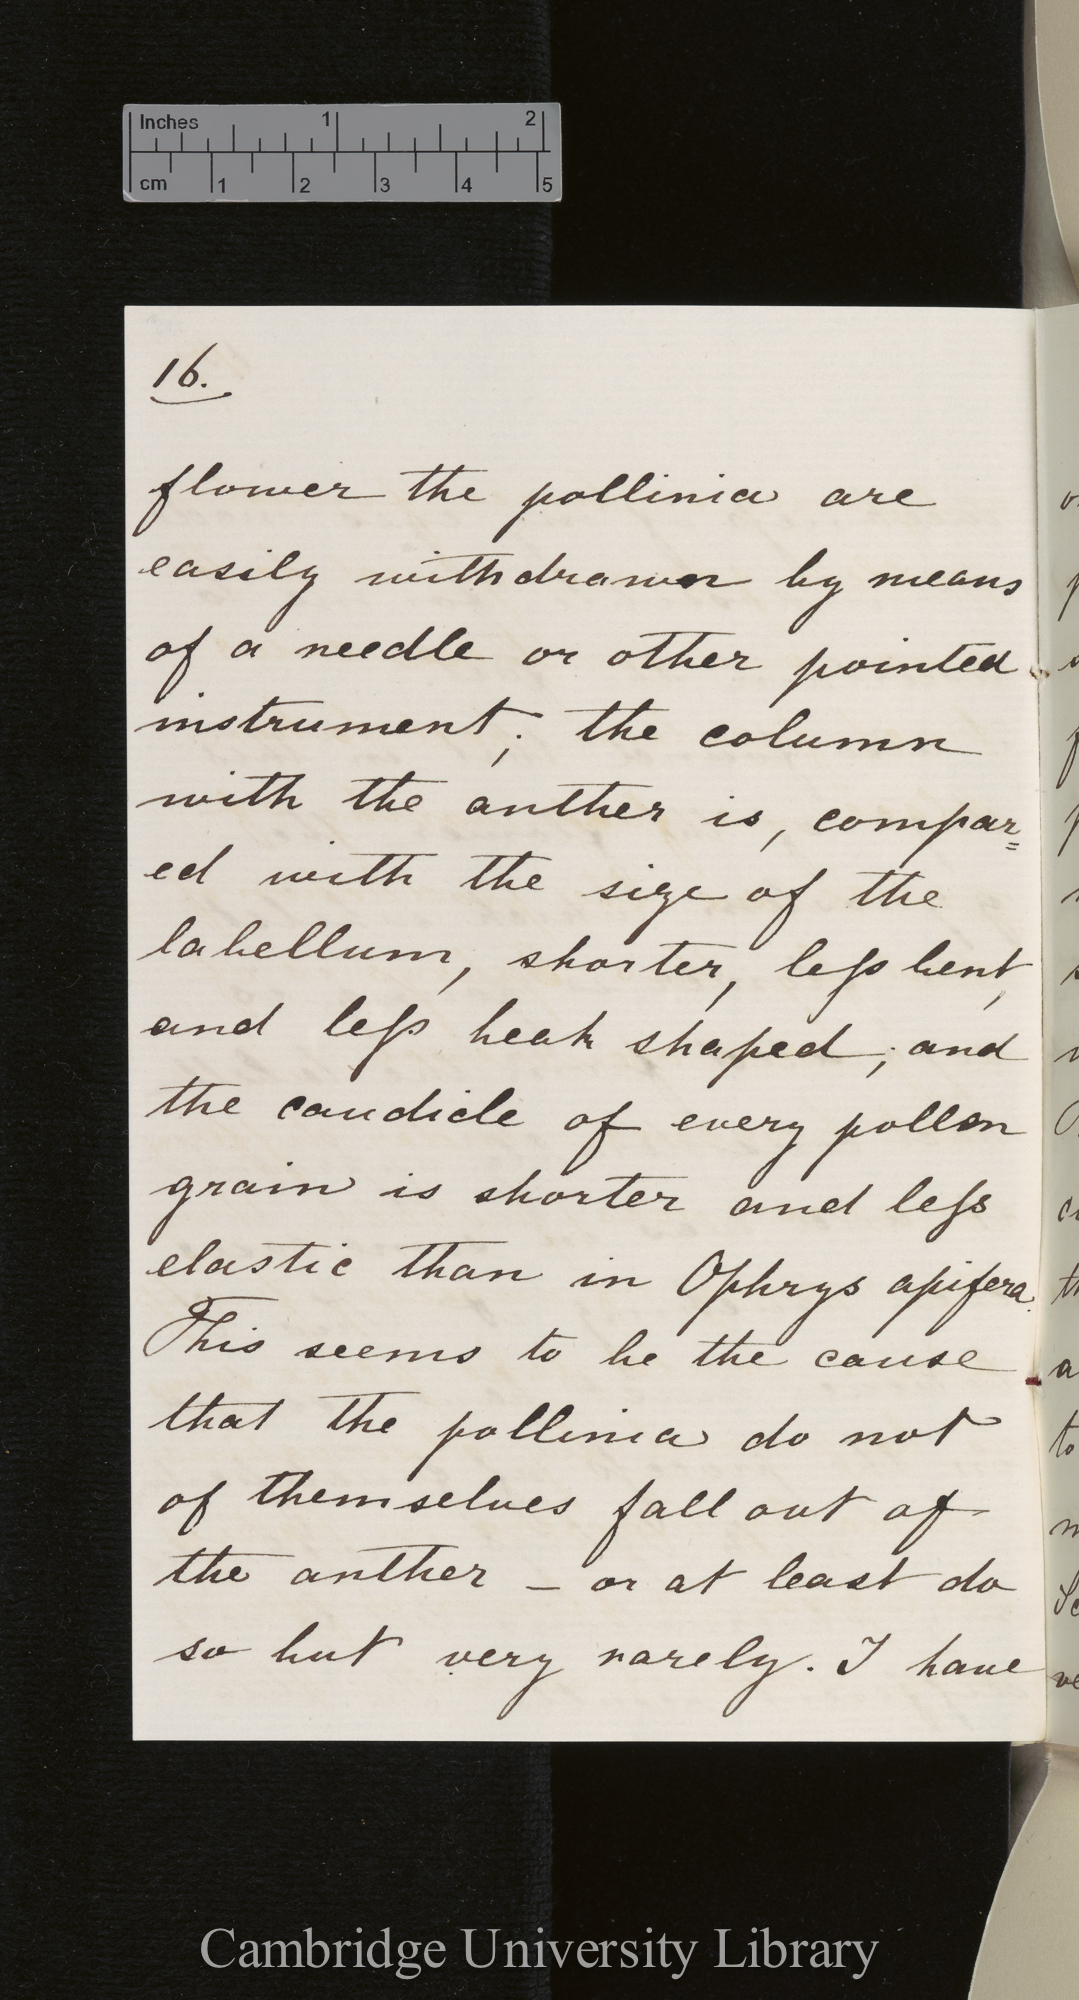 Inches 1 2
cm 1 2 3 4 5
16.
flower the pollinia are
easily withdrawn by means
of a needle or other pointed
instrument; the column
with the anther is, compar=
ed with the size of the
labellum, shorter, less bent,
and less beak shaped; and
the caudicle of every pollen
grain is shorter and less
elastic than in Ophrys apifera.
This seems to be the cause
that the pollinia do not
of themselves fall out of
the anther – or at least do
so but very rarely. I have
Cambridge University Library